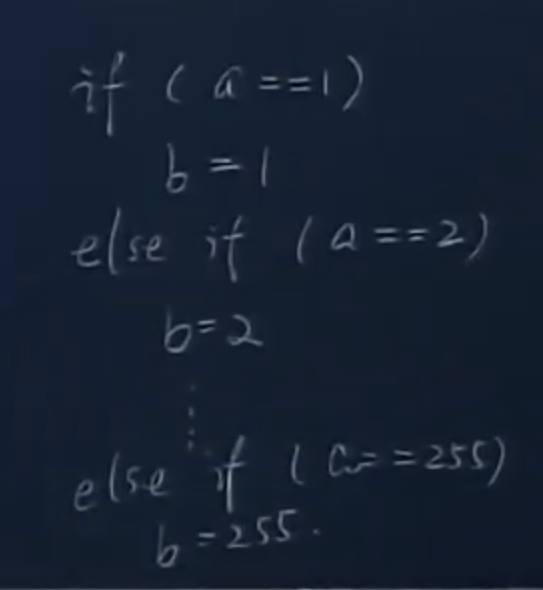 if ( a ==1)
b = 1
else if ( a ==2)
b=2
⋮
else if ( a==255)
b =255.